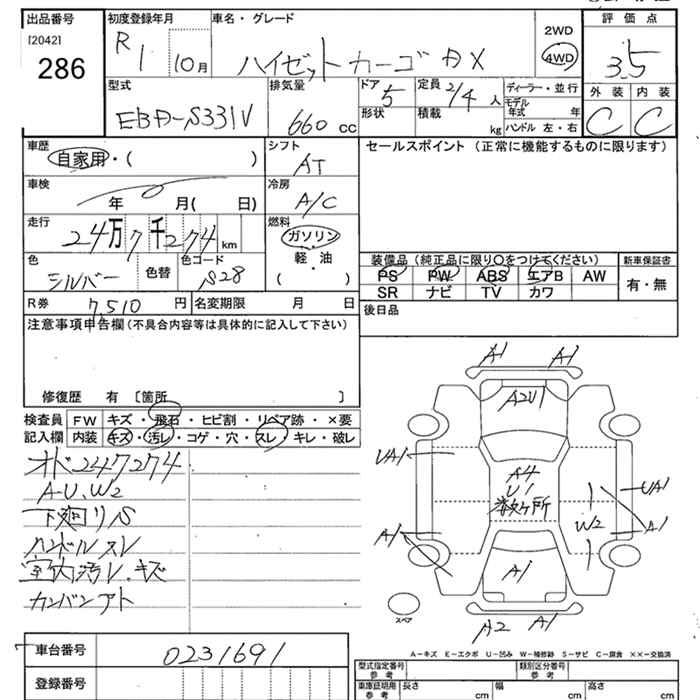 出品番号
[2042]
286
初度登録年月
R 1 10月
車名・グレード
ハイゼットカーゴ DX
2WD
4WD
評価点
3.5
外装 内装
C C
型式
EBD-S331V
排気量
660 cc
ドア 5
形状
定員 2/4 人
積載 kg
ディーラー・並行
モデル年式 年
ハンドル 左・右
車歴
自家用・( )
シフト
AT
セールスポイント (正常に機能するものに限ります)
車検
年 月( 日)
冷房
A/C
走行
24万7千274 km
燃料
ガソリン
軽・油
( )
色
シルバー
色替
色コード
S28
装備品 (純正品に限り○をつけてください)
PS PW ABS エアB AW
SR ナビ TV カワ
新車保証書
有・無
R券 7,510 円
名変期限 月 日
後日品
注意事項申告欄(不具合内容等は具体的に記入して下さい)
修復歴 有 [箇所 ]
検査員記入欄
FW キズ・飛石・ヒビ割・リペア跡・×要
内装 キズ・汚レ・コゲ・穴・スレ・キレ・破レ
オド247274
A-U、W2
下廻りS
ハンドルスレ
室内汚レ、キズ
カンバンアト
A1 A1
A2U1
UA1
A4
U1
数ヶ所
UA1
W2
A1
A1
A1
A2 A1
スペア
車台番号 0231691
登録番号
A-キズ E-エクボ U-凹み W-補修跡 S-サビ C-腐食 ××-交換済
型式指定番号 参考
類別区分番号 参考
車庫証明用 参考
長さ cm
幅 cm
高さ cm